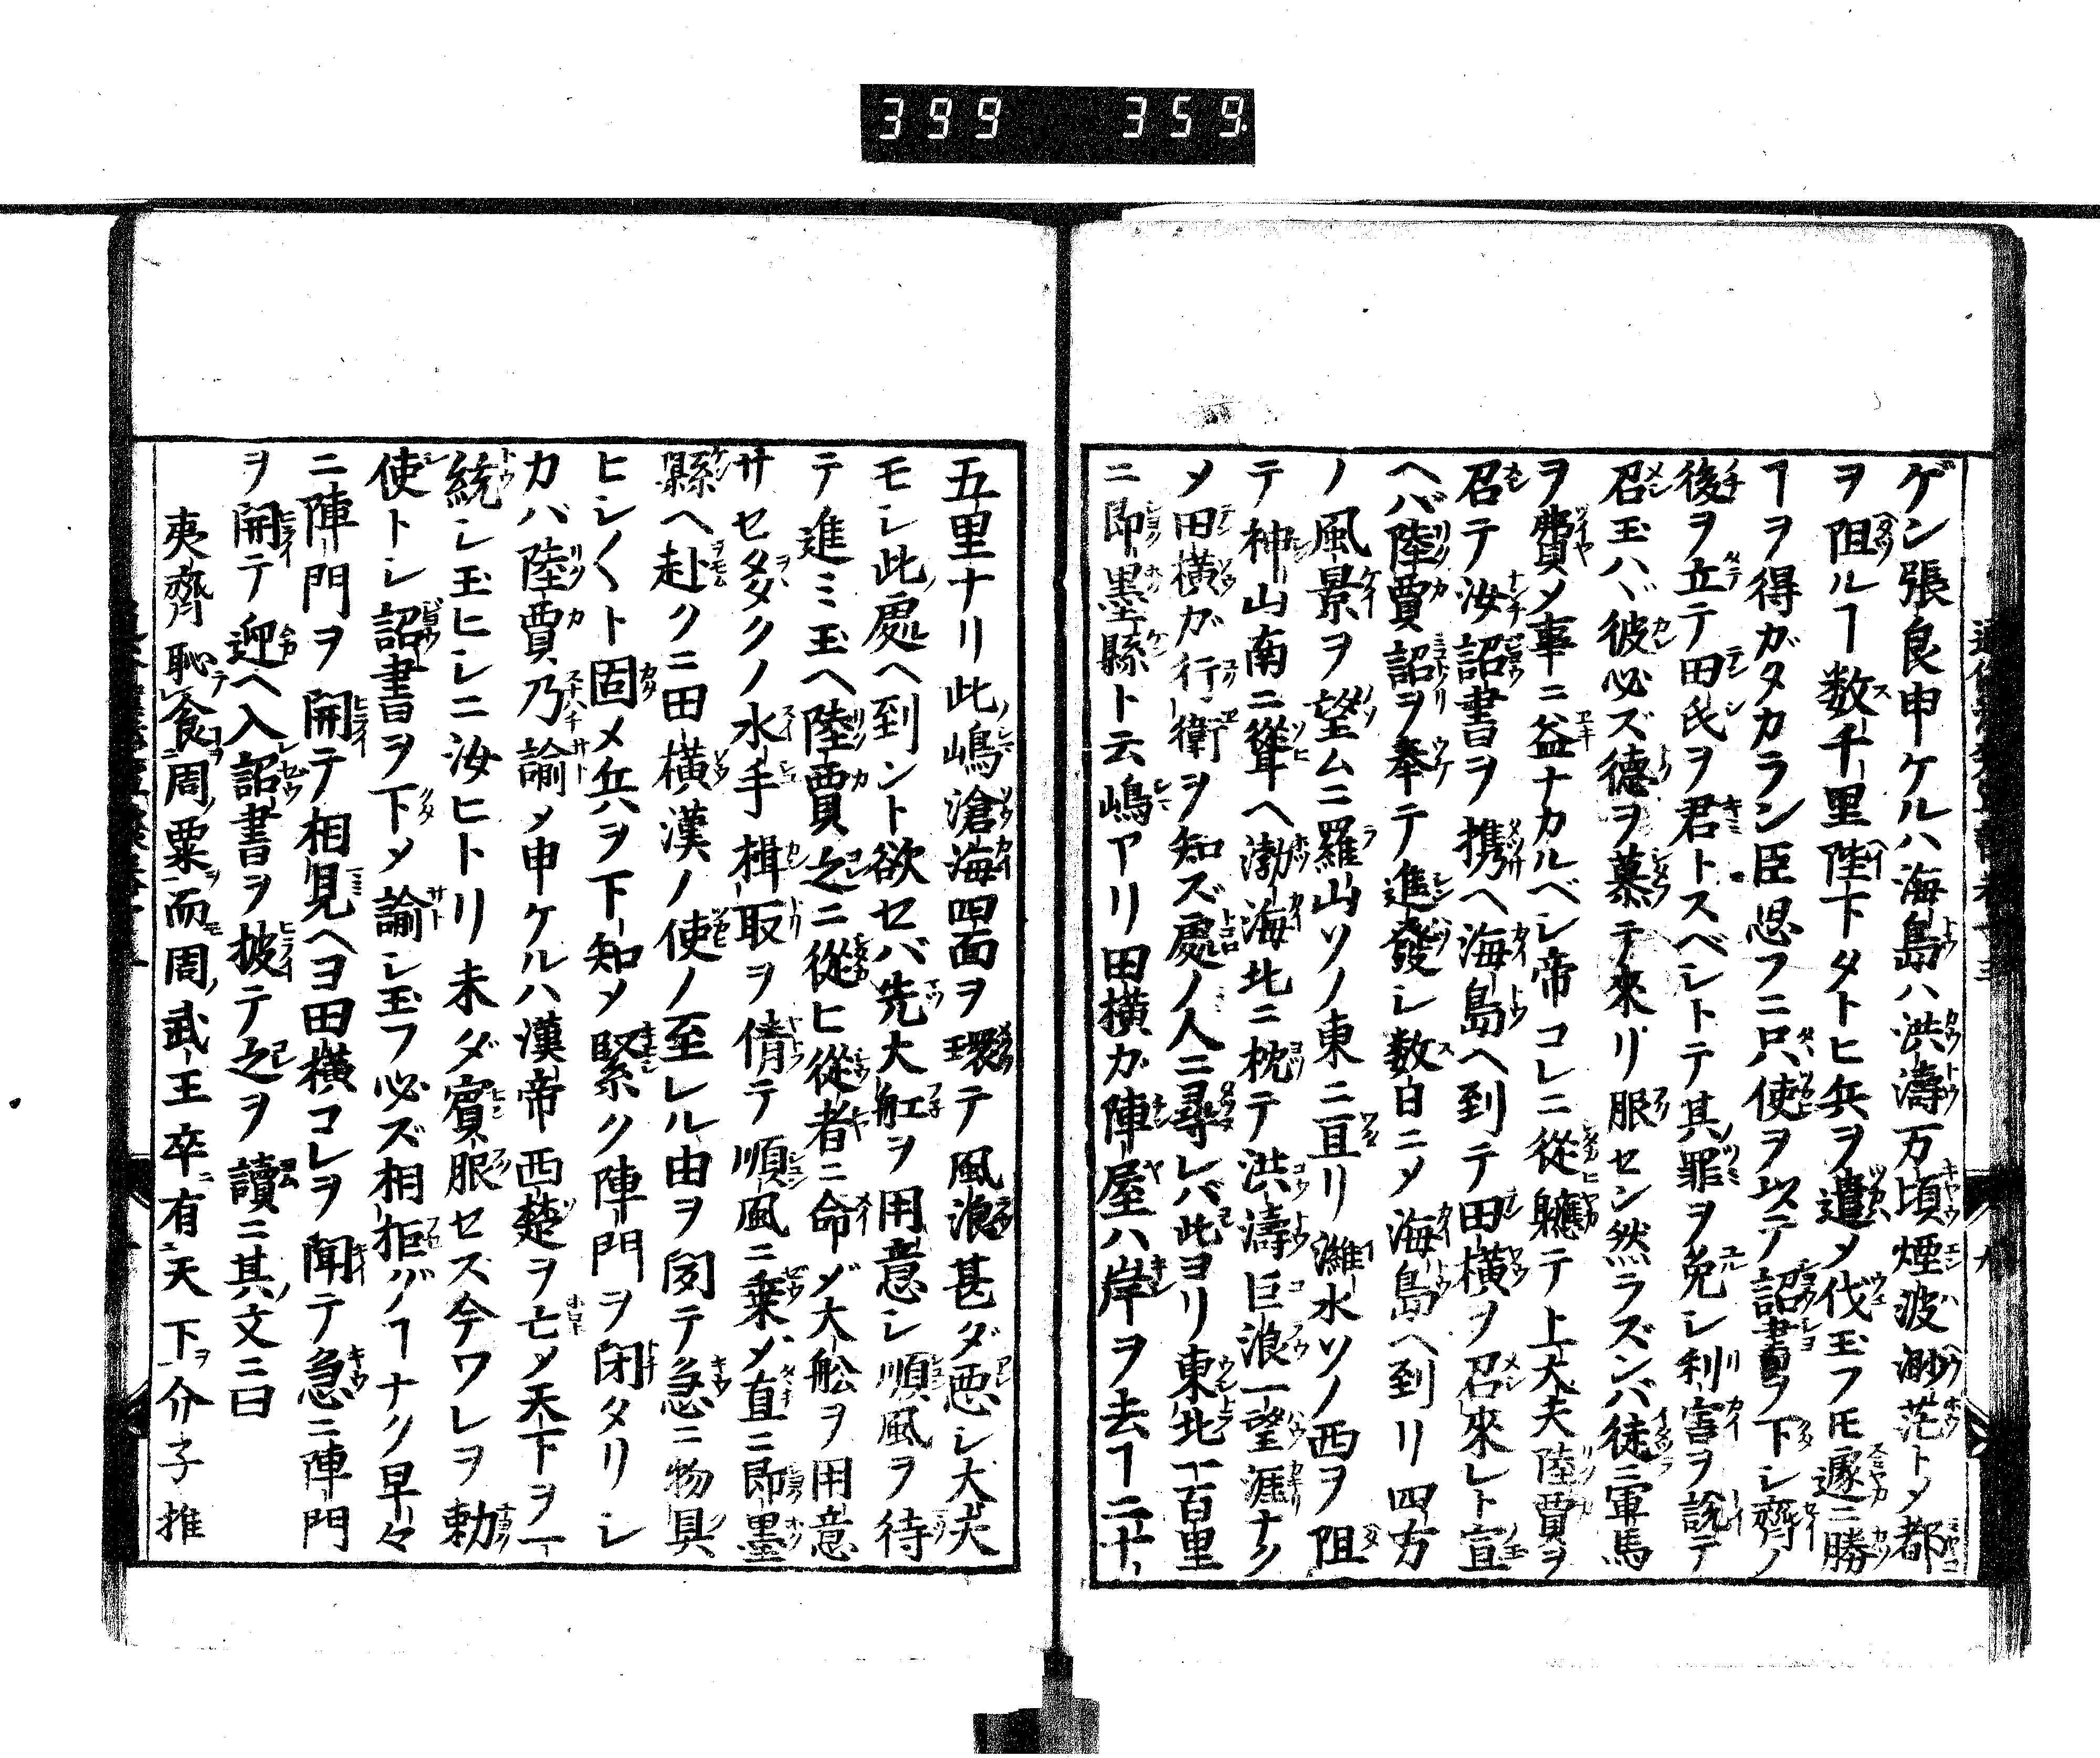 399 359.
ゲン張良申ケルハ海島ハ洪濤万頃煙波渺茫トメ都
ヲ阻ルヿ数千里陛下タトヒ兵ヲ遣メ伐玉フモ遽ニ勝
ヿヲ得ガタカラン臣思フニ只使ヲ以テ詔書ヲ下シ齊ノ
後ヲ立テ田氏ヲ君トスベシトテ其罪ヲ免シ利害ヲ説テ
召玉ハヾ彼必ズ德ヲ慕テ來リ服セン然ラズンバ徒ニ軍馬
ヲ費メ事ニ益ナカルベシ帝コレニ從軈テ上大夫陸賈ヲ
召テ汝詔書ヲ携ヘ海島ヘ到テ田横ヲ召來レト宣
ヘバ陸賈詔ヲ奉テ進發シ数日ニメ海島ヘ到リ四方
ノ風景ヲ望ムニ羅山ソノ東ニ亘リ濰水ソノ西ヲ阻
テ神山南ニ聳ヘ渤海北ニ枕テ洪濤巨浪一望涯ナク
メ田横ガ行衛ヲ知ズ處ノ人ニ尋レバ此ヨリ東北一百里
ニ即墨縣ト云嶋アリ田横ガ陣屋ハ岸ヲ去ヿ二十
五里ナリ此嶋滄海四面ヲ環テ風浪甚ダ悪シ大夫
モシ此處ヘ到ント欲セバ先大舡ヲ用意シ順風ヲ待
テ進ミ玉ヘ陸賈之ニ從ヒ從者ニ命ジ大舩ヲ用意
サセ多クノ水手楫取ヲ倩テ順風ニ乗メ直ニ即墨
縣ヘ赴クニ田横漢ノ使ノ至レル由ヲ聞テ急ニ物具
ヒシ〱ト固メ兵ヲ下知メ緊ク陣門ヲ閉タリシ
カバ陸賈乃諭メ申ケルハ漢帝西楚ヲ亡メ天下ヲ一
統シ玉ヒシニ汝ヒトリ未ダ賓服セス今ワレヲ勅
使トシ詔書ヲ下メ諭シ玉フ必ズ相拒グヿナク早々
ニ陣門ヲ開テ相見ヘヨ田横コレヲ聞テ急ニ陣門
ヲ開テ迎ヘ入詔書ヲ披テ之ヲ讀ニ其文ニ曰
夷齊恥食周粟而周武王卒有天下介子推